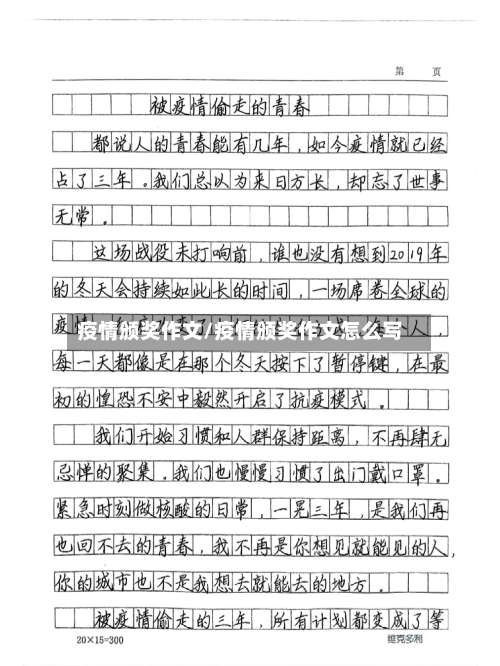 第 页
被疫情偷走的青春
都说人的青春能有几年，如今疫情就已经
占了三年。我们总以为来日方长，却忘了世事
无常。
这场战役未打响前，谁也没有想到2019年
的冬天会持续如此长的时间，一场席卷全球的
疫情
疫情颁奖作文/疫情颁奖作文怎么写
人，
每一天都像是在那个冬天按下了暂停键，在最
初的惶恐不安中毅然开启了抗疫模式。
我们开始习惯和人群保持距离，不再肆无
忌惮的聚集。我们也慢慢习惯了出门戴口罩。
紧急时刻做核酸的日常，一晃三年，是我们再
也回不去的青春，我不再是你想见就能见的人，
你的城市也不是我想去就能去的地方。
被疫情偷走的三年，所有计划都变成了等
20×15=300 维克多利